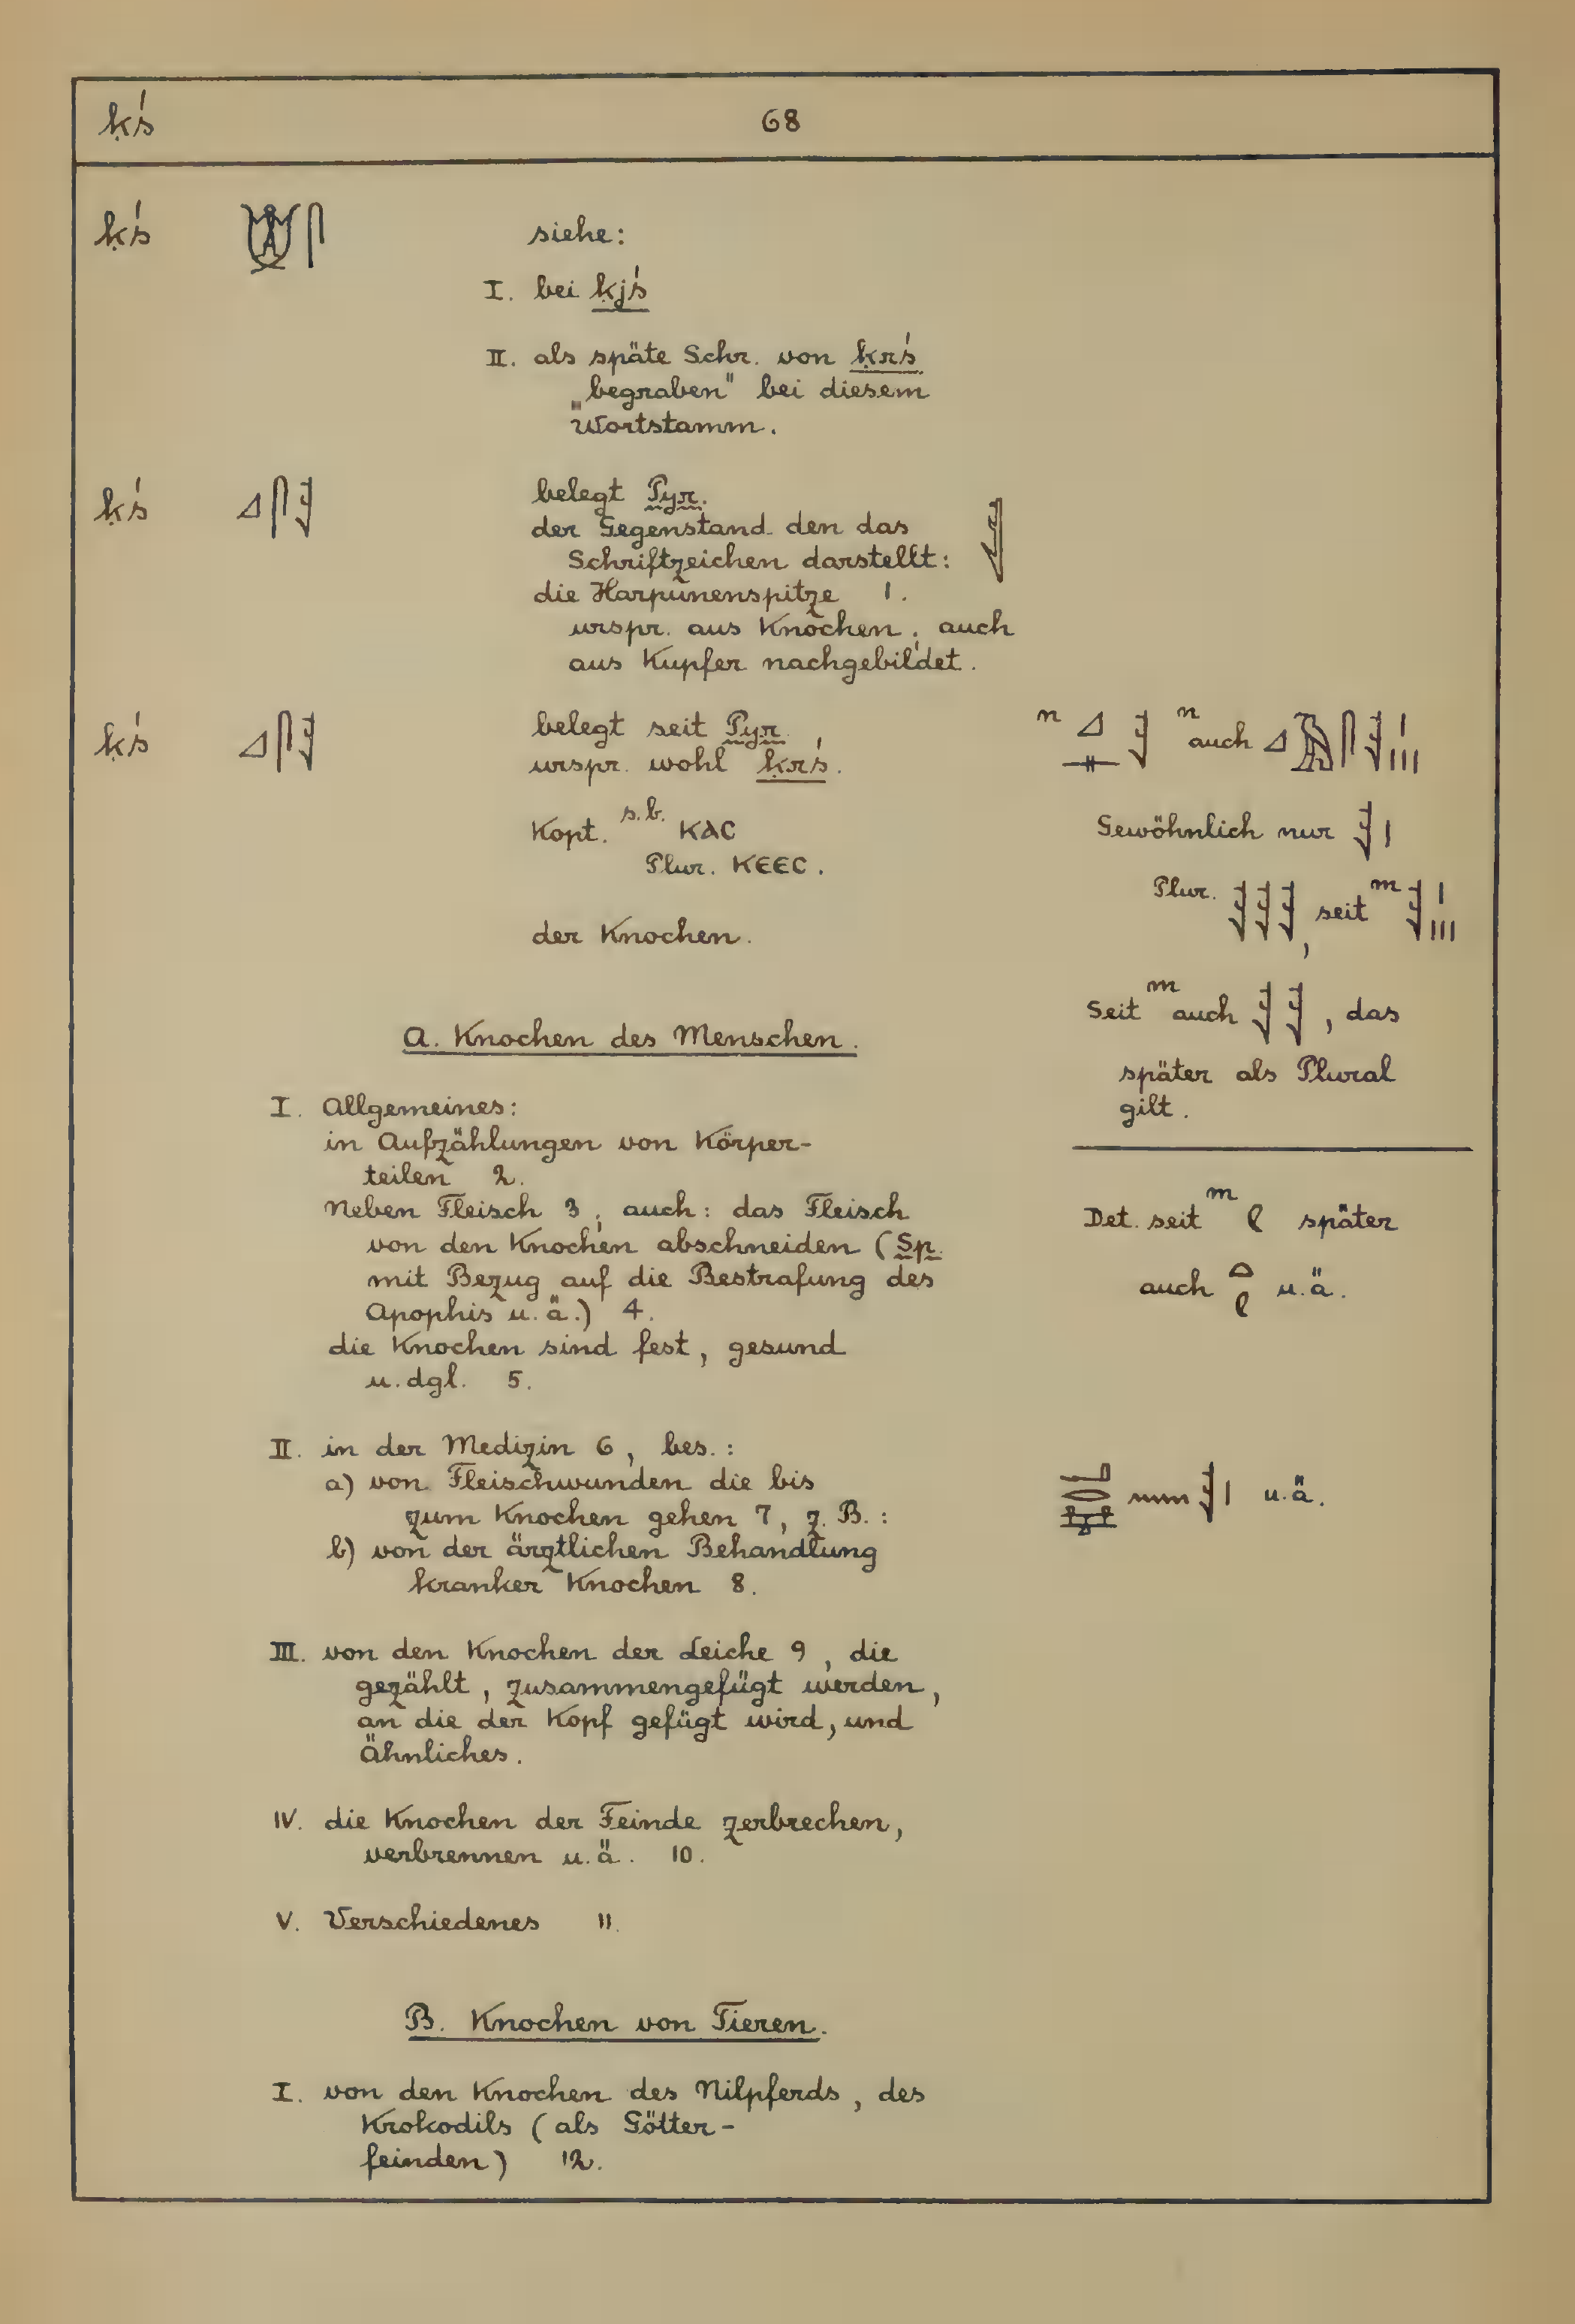 ḳś 68
ḳś siehe:
I. bei ḳjś
II. als späte Schr. von ḳrś
„begraben" bei diesem
Wortstamm.
ḳś belegt Pyr.
der Gegenstand den das
Schriftzeichen darstellt:
die Harpunenspitze 1.
urspr. aus Knochen; auch
aus Kupfer nachgebildet.
ḳś belegt seit Pyr.,
urspr. wohl ḳrś.
Kopt. s.b. ⲔⲀⲤ
Plur. ⲔⲈⲈⲤ.
der Knochen.
n n auch
Gewöhnlich nur
Plur. , seit m
Seit m auch , das
später als Plural
gilt.
Det. seit m später
auch u.ä.
A. Knochen des Menschen.
I. Allgemeines:
in Aufzählungen von Körper-
teilen 2.
Neben Fleisch 3; auch: das Fleisch
von den Knochen abschneiden (Sp.
mit Bezug auf die Bestrafung des
Apophis u.ä.) 4.
die Knochen sind fest, gesund
u. dgl. 5.
II. in der Medizin 6, bes.:
a) von Fleischwunden die bis
zum Knochen gehen 7, z. B.: u.ä.
b) von der ärztlichen Behandlung
kranker Knochen 8.
III. von den Knochen der Leiche 9, die
gezählt, zusammengefügt werden,
an die der Kopf gefügt wird, und
Ähnliches.
IV. die Knochen der Feinde zerbrechen,
verbrennen u.ä. 10.
V. Verschiedenes 11.
B. Knochen von Tieren.
I. von den Knochen des Nilpferds, des
Krokodils (als Götter-
feinden) 12.